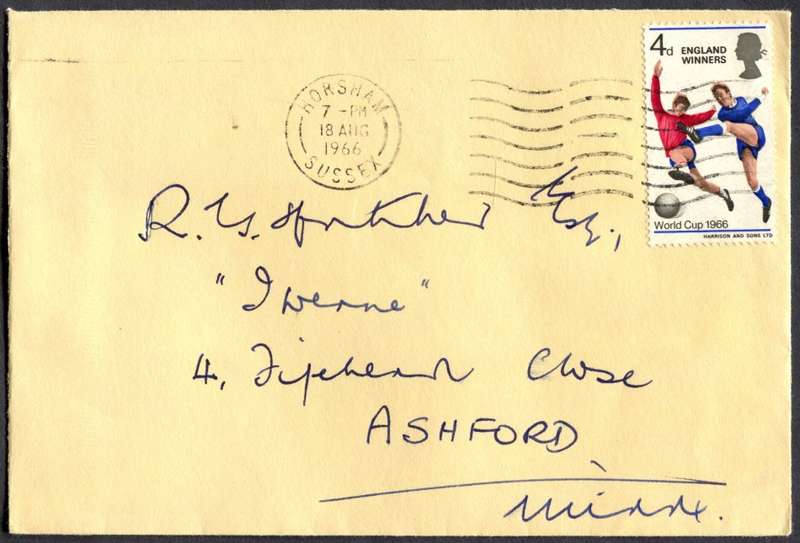 HORSHAM
7-PM
18 AUG
1966
SUSSEX
4d ENGLAND
WINNERS
World Cup 1966
HARRISON AND SONS LTD
R. G. Esq.,
"Iwerne"
4, Fifehead Close
ASHFORD
Middx.